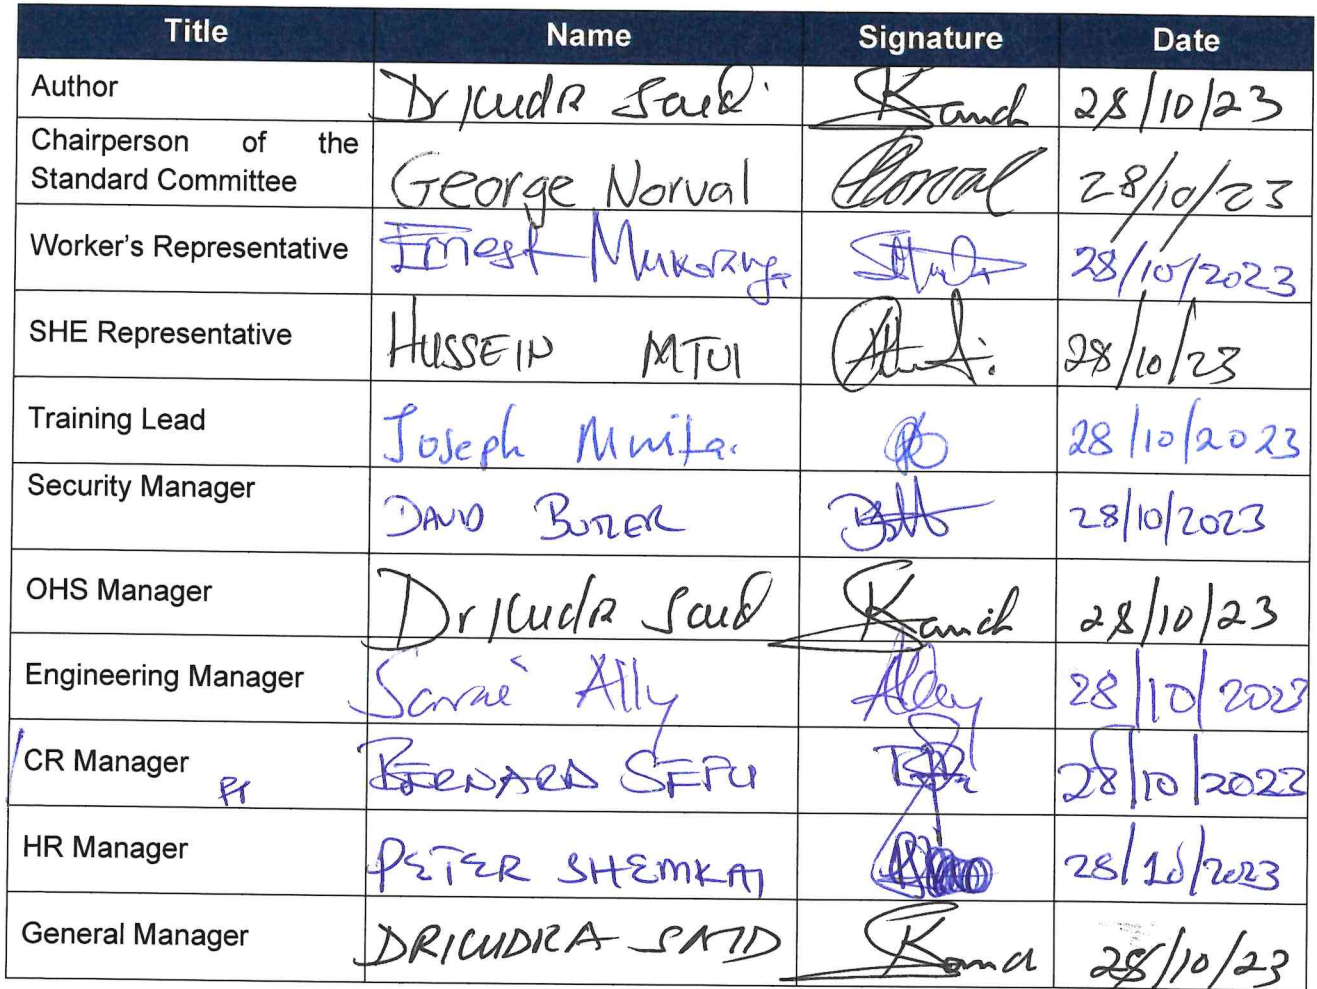 Title Name Signature Date
Author Dr Kudra Said 28/10/23
Chairperson of the
Standard Committee George Norval 28/10/23
Worker's Representative Ernest 28/10/2023
SHE Representative HUSSEIN MTUI 28/10/23
Training Lead Joseph 28/10/2023
Security Manager DAVID BUTLER 28/10/2023
OHS Manager Dr Kudra Said 28/10/23
Engineering Manager Ally 28/10/2023
CR Manager BERNARD 28/10/2023
HR Manager PETER SHEMKAI 28/10/2023
General Manager SAID 28/10/23